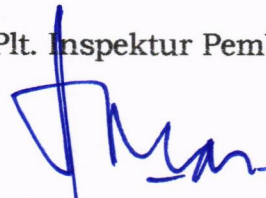 Plt. Inspektur Pem